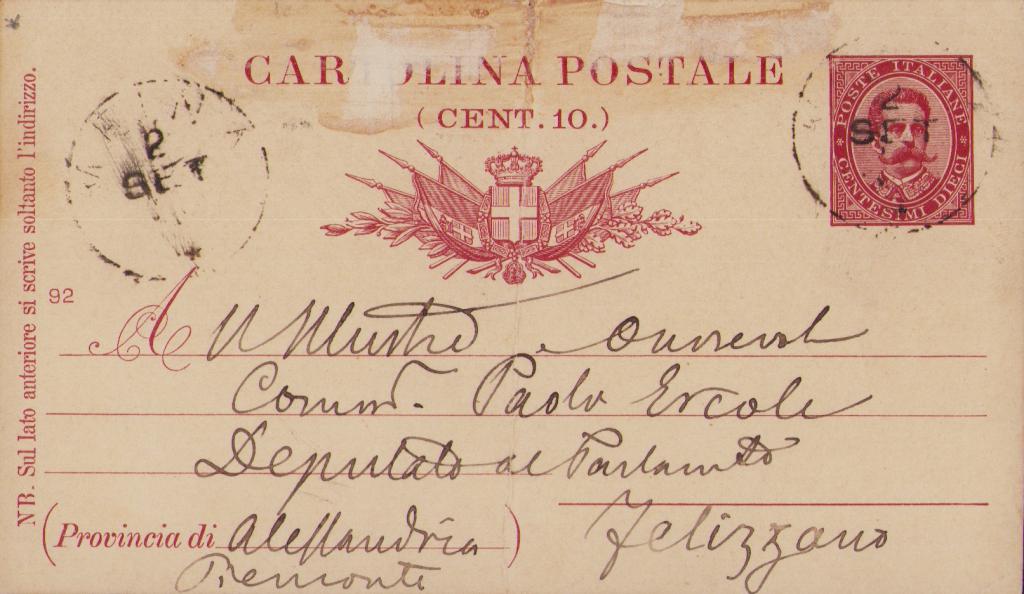 CARTOLINA POSTALE
(CENT. 10.)
POSTE ITALIANE
CENTESIMI DIECI
2
SET
2
SET
NB. Sul lato anteriore si scrive soltanto l'indirizzo.
92
A Illustre e onorevole
Comm. Paolo Ercole
Deputato al Parlamento
(Provincia di Alessandria) Felizzano
Piemonte